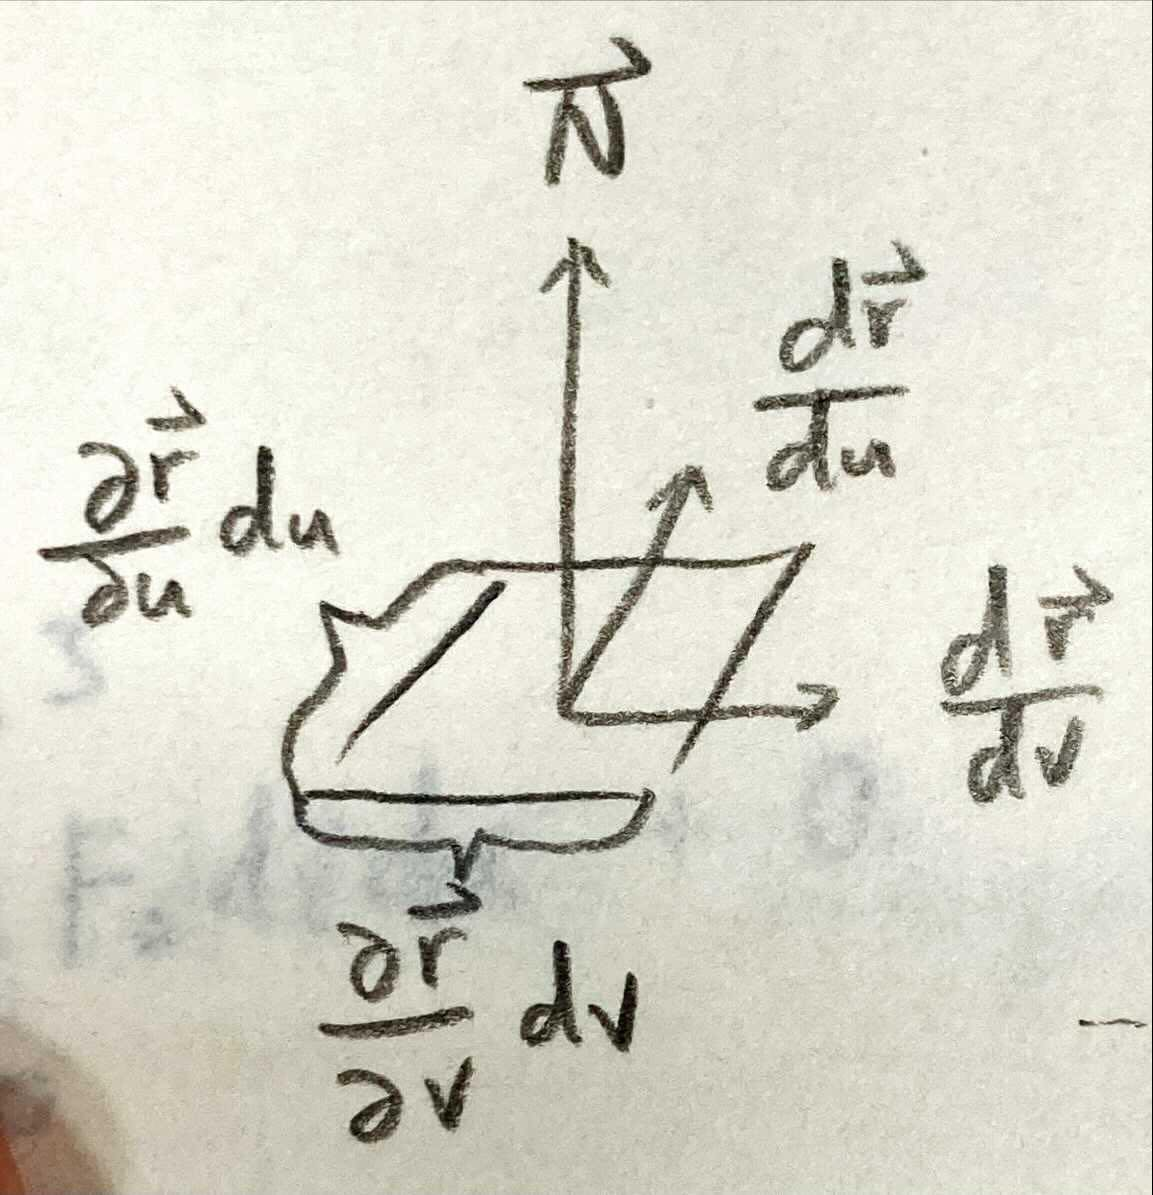 N⃗
dr⃗/du
∂r⃗/∂u du
dr⃗/dv
∂r⃗/∂v dv